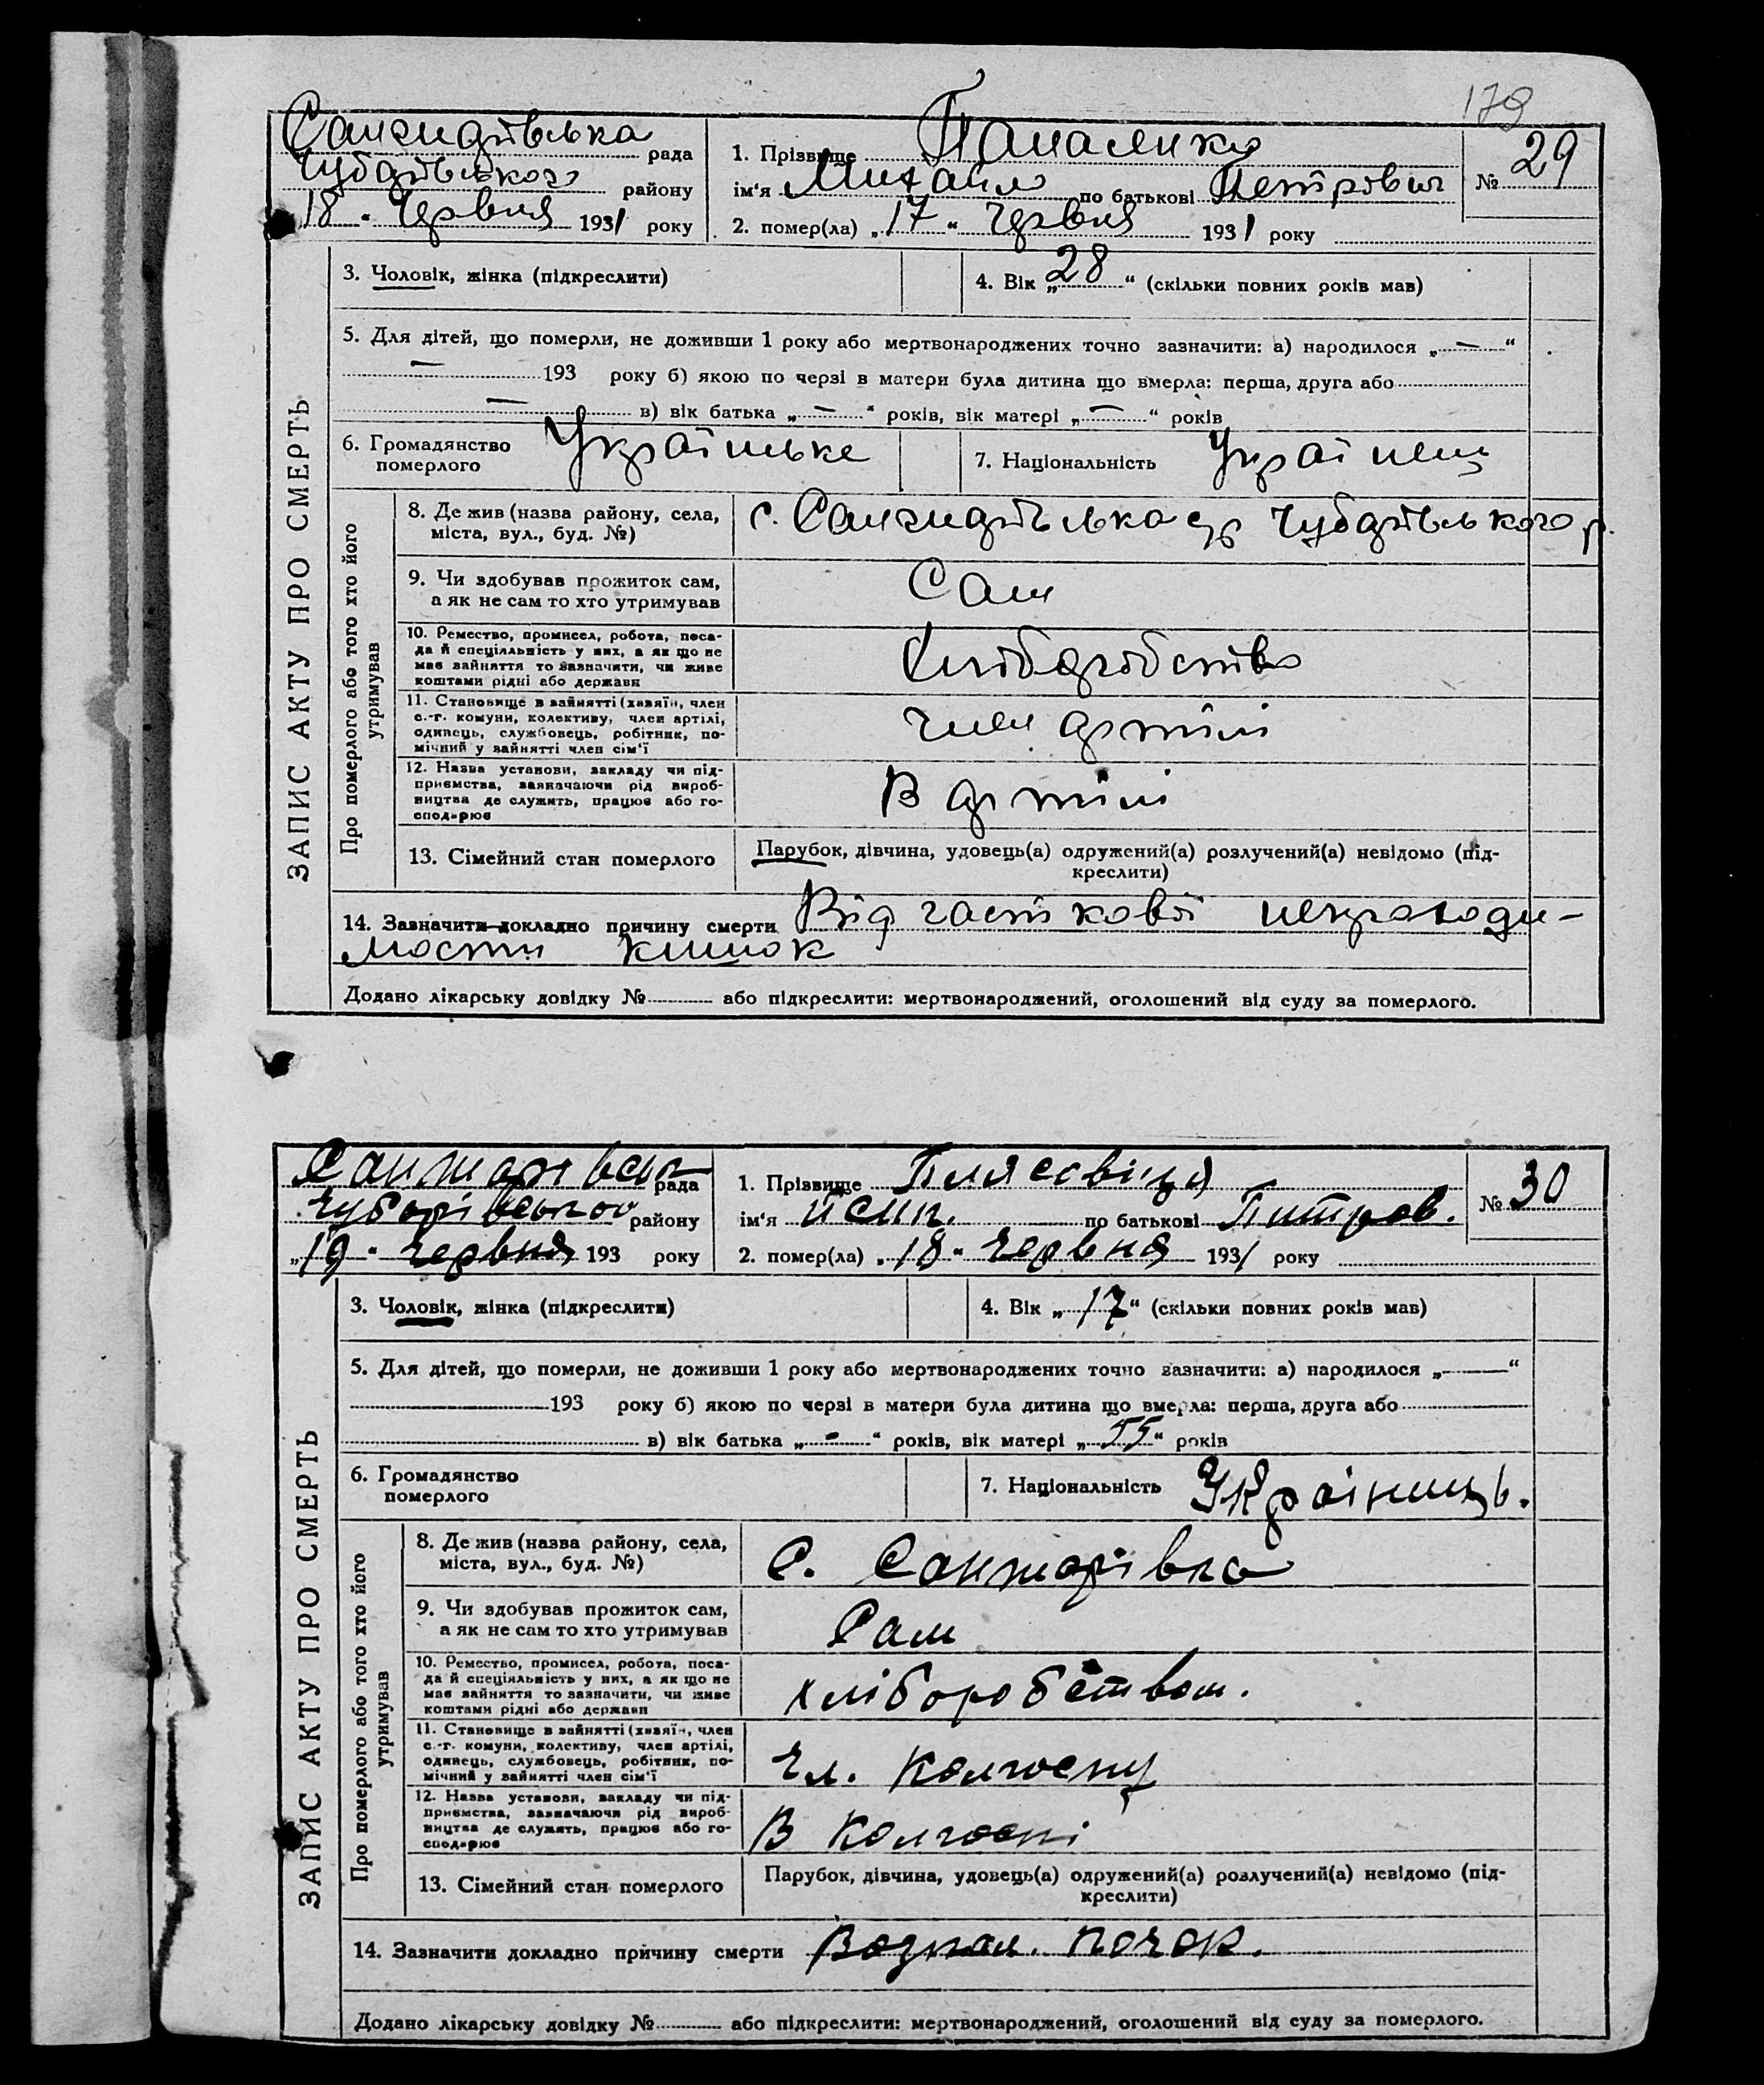 179
Санжарівська рада
Чубарівського району
18 " Червня 1931 року
1. Прізвище Панасенко
ім'я Михайло по батькові Петрович
2. помер(ла) „ 17 " Червня 1931 року
№ 29
ЗАПИС АКТУ ПРО СМЕРТЬ
3. Чоловік, жінка (підкреслити)
4. Вік „ 28 " (скільки повних років мав)
5. Для дітей, що померли, не доживши 1 року або мертвонароджених точно зазначити: а) народилося „ — "
— 193 року б) якою по черзі в матери була дитина що вмерла: перша, друга або
— в) вік батька „ — " років, вік матері „ — " років
6. Громадянство Українське
померлого
7. Національність Українец
Про померлого або того хто його
утримував
8. Де жив (назва району, села,
міста, вул., буд. №)
с. Санжарівська ср Чубарівського р.
9. Чи здобував прожиток сам,
а як не сам то хто утримував
Сам
10. Ремество, промисел, робота, поса-
да й спеціяльність у них, а як що не
має зайняття то зазначити, чи живе
коштами рідні або держави
Хліборобство
11. Становище в зайнятті (хазяїн, член
с.-г. комуни, колективу, член артілі,
одинець, службовець, робітник, по-
мічний у зайнятті член сім'ї
член артілі
12. Назва установи, закладу чи під-
приємства, зазначаючи рід вироб-
ництва де служить, працює або го-
сподарює
В артілі
13. Сімейний стан померлого
Парубок, дівчина, удовець(а) одружений(а) розлучений(а) невідомо (під-
креслити)
14. Зазначити докладно причину смерти Від часткової непроходи-
мости кишок
Додано лікарську довідку № або підкреслити: мертвонароджений, оголошений від суду за померлого.
Санжарівськ рада
Чубарівського району
„ 19 " Червня 193 року
1. Прізвище
ім'я по батькові Питров.
2. помер(ла) „ 18 " Червня 1931 року
№ 30
ЗАПИС АКТУ ПРО СМЕРТЬ
3. Чоловік, жінка (підкреслити)
4. Вік „ 17 " (скільки повних років мав)
5. Для дітей, що померли, не доживши 1 року або мертвонароджених точно зазначити: а) народилося „ — "
193 року б) якою по черзі в матери була дитина що вмерла: перша, друга або
в) вік батька „ - " років, вік матері „ 55 " років
6. Громадянство
померлого
7. Національність Українець.
Про померлого або того хто його
утримував
8. Де жив (назва району, села,
міста, вул., буд. №)
С. Санжарівка
9. Чи здобував прожиток сам,
а як не сам то хто утримував
Сам
10. Ремество, промисел, робота, поса-
да й спеціяльність у них, а як що не
має зайняття то зазначити, чи живе
коштами рідні або держави
хліборобством.
11. Становище в зайнятті (хазяїн, член
с.-г. комуни, колективу, член артілі,
одинець, службовець, робітник, по-
мічний у зайнятті член сім'ї
Чл. Колгоспу
12. Назва установи, закладу чи під-
приємства, зазначаючи рід вироб-
ництва де служить, працює або го-
сподарює
В Колгоспі
13. Сімейний стан померлого
Парубок, дівчина, удовець(а) одружений(а) розлучений(а) невідомо (під-
креслити)
14. Зазначити докладно причину смерти почок.
Додано лікарську довідку № або підкреслити: мертвонароджений, оголошений від суду за померлого.